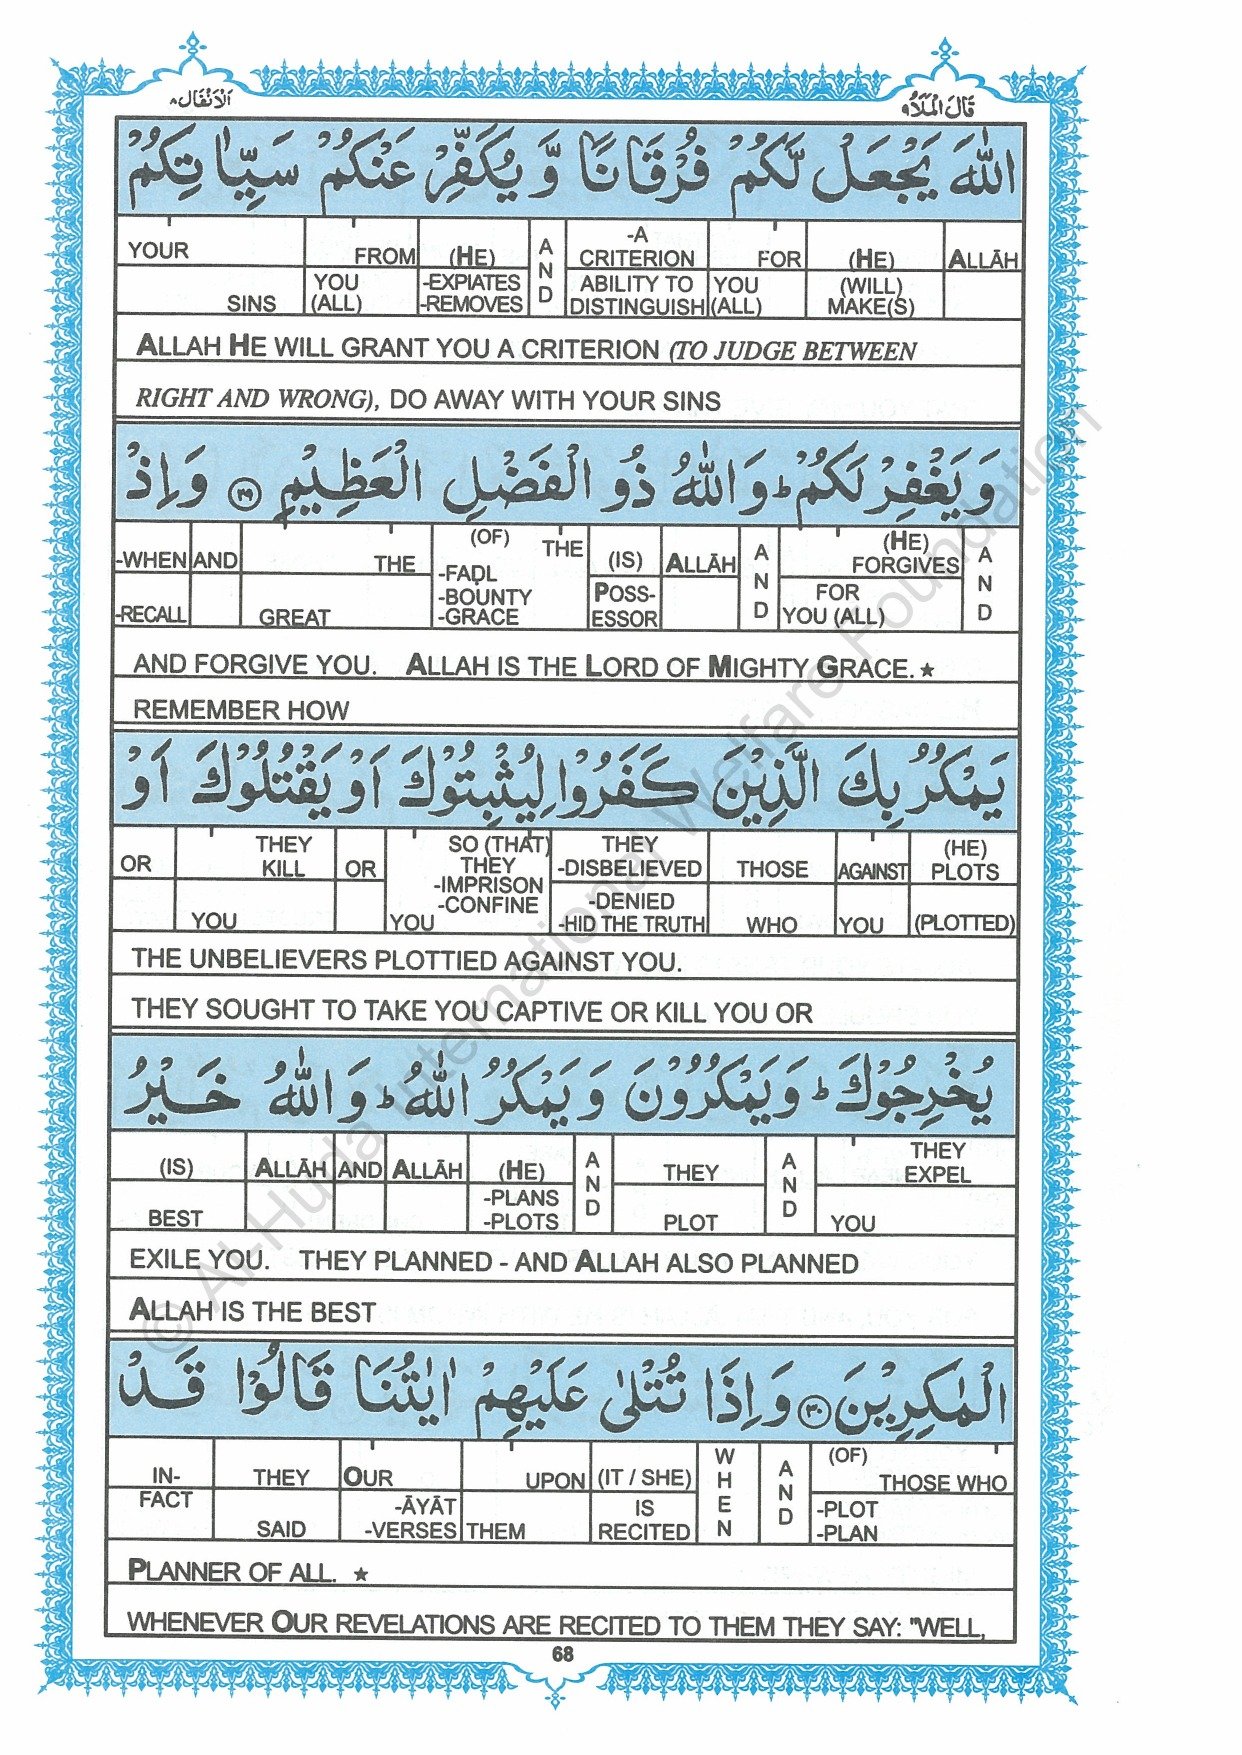 اَلْاَنْفَال ٨ قَالَ الْمَلَاُ ٩
اللّٰهَ يَجْعَلْ لَّكُمْ فُرْقَانًا وَّ يُكَفِّرْ عَنْكُمْ سَيِّاٰتِكُمْ
YOUR FROM (HE) AND -A CRITERION FOR (HE) ALLĀH
SINS YOU (ALL) -EXPIATES -REMOVES ABILITY TO DISTINGUISH YOU (ALL) (WILL) MAKE(S)
ALLAH HE WILL GRANT YOU A CRITERION (TO JUDGE BETWEEN
RIGHT AND WRONG), DO AWAY WITH YOUR SINS
وَ يَغْفِرْ لَكُمْ ؕ وَ اللّٰهُ ذُو الْفَضْلِ الْعَظِيْمِ ٢٩ وَ اِذْ
-WHEN AND THE (OF) THE (IS) ALLĀH AND (HE) FORGIVES AND
-RECALL GREAT -FAḌL -BOUNTY -GRACE POSS- ESSOR FOR YOU (ALL)
AND FORGIVE YOU. ALLAH IS THE LORD OF MIGHTY GRACE. ★
REMEMBER HOW
يَمْكُرُ بِكَ الَّذِيْنَ كَفَرُوْا لِيُثْبِتُوْكَ اَوْ يَقْتُلُوْكَ اَوْ
OR THEY KILL OR SO (THAT) THEY -IMPRISON -CONFINE THEY -DISBELIEVED THOSE AGAINST (HE) PLOTS
YOU YOU -DENIED -HID THE TRUTH WHO YOU (PLOTTED)
THE UNBELIEVERS PLOTTIED AGAINST YOU.
THEY SOUGHT TO TAKE YOU CAPTIVE OR KILL YOU OR
يُخْرِجُوْكَ ؕ وَ يَمْكُرُوْنَ وَ يَمْكُرُ اللّٰهُ ؕ وَ اللّٰهُ خَيْرُ
(IS) ALLĀH AND ALLĀH (HE) AND THEY AND THEY EXPEL
BEST -PLANS -PLOTS PLOT YOU
EXILE YOU. THEY PLANNED - AND ALLAH ALSO PLANNED
ALLAH IS THE BEST
الْمٰكِرِيْنَ ٣٠ وَ اِذَا تُتْلٰى عَلَيْهِمْ اٰيٰتُنَا قَالُوْا قَدْ
IN- FACT THEY OUR UPON (IT / SHE) WHEN AND (OF) THOSE WHO
SAID -ĀYĀT -VERSES THEM IS RECITED -PLOT -PLAN
PLANNER OF ALL. ★
WHENEVER OUR REVELATIONS ARE RECITED TO THEM THEY SAY: "WELL,
68
© Al-Huda International Welfare Foundation